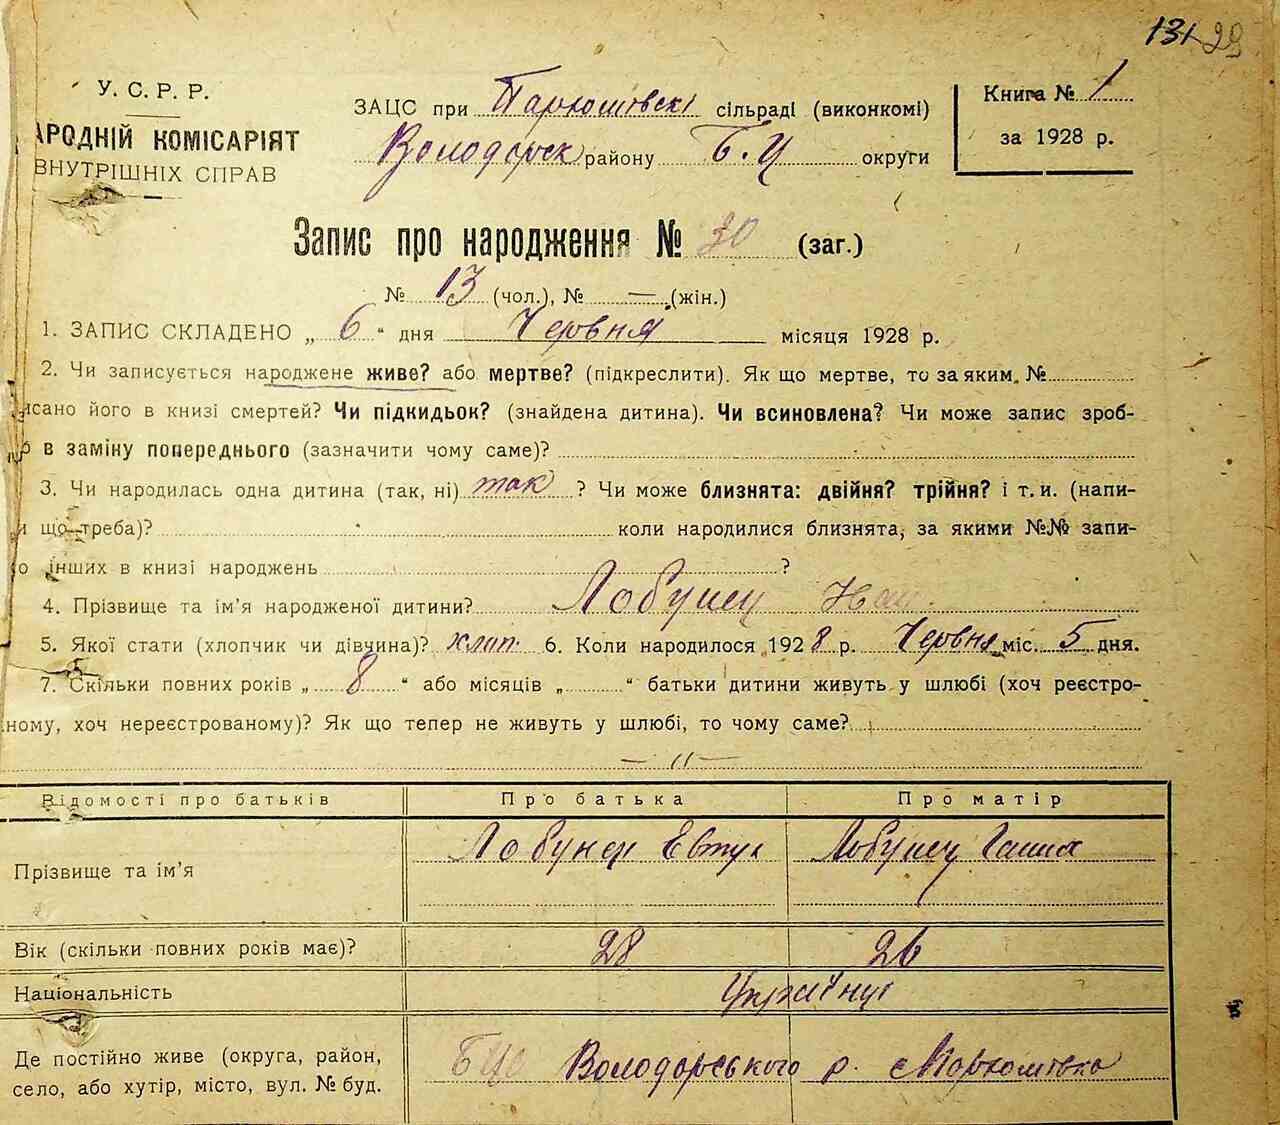 131 29
У. С. Р. Р.
АРОДНІЙ КОМІСАРІЯТ
ВНУТРІШНІХ СПРАВ
ЗАЦС при Пархомівскі сільраді (виконкомі)
Володарск району Б.Ц округи
Книга № 1
за 1928 р.
Запис про народження № 30 (заг.)
№ 13 (чол.), № — (жін.)
1. ЗАПИС СКЛАДЕНО „ 6 “ дня Червня місяця 1928 р.
2. Чи записується народжене живе? або мертве? (підкреслити). Як що мертве, то за яким №
исано його в книзі смертей? Чи підкидьок? (знайдена дитина). Чи всиновлена? Чи може запис зроб-
в заміну попереднього (зазначити чому саме)?
3. Чи народилась одна дитина (так, ні) так ? Чи може близнята: двійня? трійня? і т. и. (напи-
и що треба)? коли народилися близнята, за якими №№ запи-
о інших в книзі народжень ?
4. Прізвище та ім'я народженої дитини? Лобунец
5. Якої стати (хлопчик чи дівчина)? хлоп. 6. Коли народилося 1928 р. Червня міс. 5 дня.
7. Скільки повних років „ 8 “ або місяців „ “ батьки дитини живуть у шлюбі (хоч реєстро-
ному, хоч нереєстрованому)? Як що тепер не живуть у шлюбі, то чому саме?
— // —
Відомості про батьків Про батька Про матір
Прізвище та ім'я Лобунец Евтух Лобунец Ганна
Вік (скільки повних років має)? 28 26
Національність Українці
Де постійно живе (округа, район,
село, або хутір, місто, вул. № буд.
БЦо Володарського р. с. Пархомівка